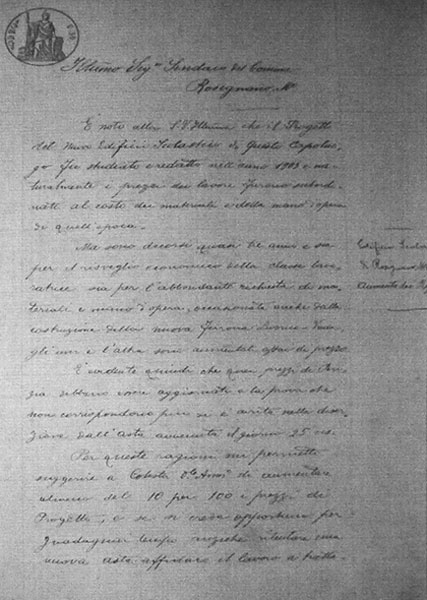 Illmo Sig.re Sindaco del Comune
Rosignano Mo
È noto alla S.V. Illma che il Progetto
del Nuovo Edificio Scolastico di Questo Capoluo-
go fu studiato e redatto nell'anno 1903 e na-
turalmente i prezzi dei lavori furono subordi-
nati al costo dei materiali e della mano d'opera
di quell'epoca.
Ma sono decorsi quasi tre anni e sia
per il risveglio economico della classe lavo-
ratrice sia per l'abbondante richiesta di ma-
teriale e mano d'opera, occasionata anche dalla
costruzione della nuova Ferrovia Livorno-Vada
gli uni e l'altra sono aumentati assai di prezzo
È evidente quindi che quei prezzi di
debbano essere aggiornati e la prova che
non corrispondono più si è avuta nella diser-
zione dall'Asta avvenuta il giorno 25
Per queste ragioni mi permetto
suggerire a Codesta di aumentare
almeno del 10 per 100 i prezzi di
Progetto, e se si creda opportuno per
guadagnar tempo anziché ritentare una
nuova asta affidare il lavoro a tratta-
Edificio
di Rosignano
Aumento dei